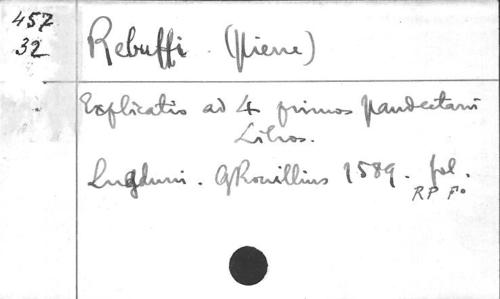 457
32
Rebuffi. (Pierre)
Explicatio ad 4 primos Pandectarum
Libros.
Lugduni. G Rouillius 1589. fol.
RP Fo